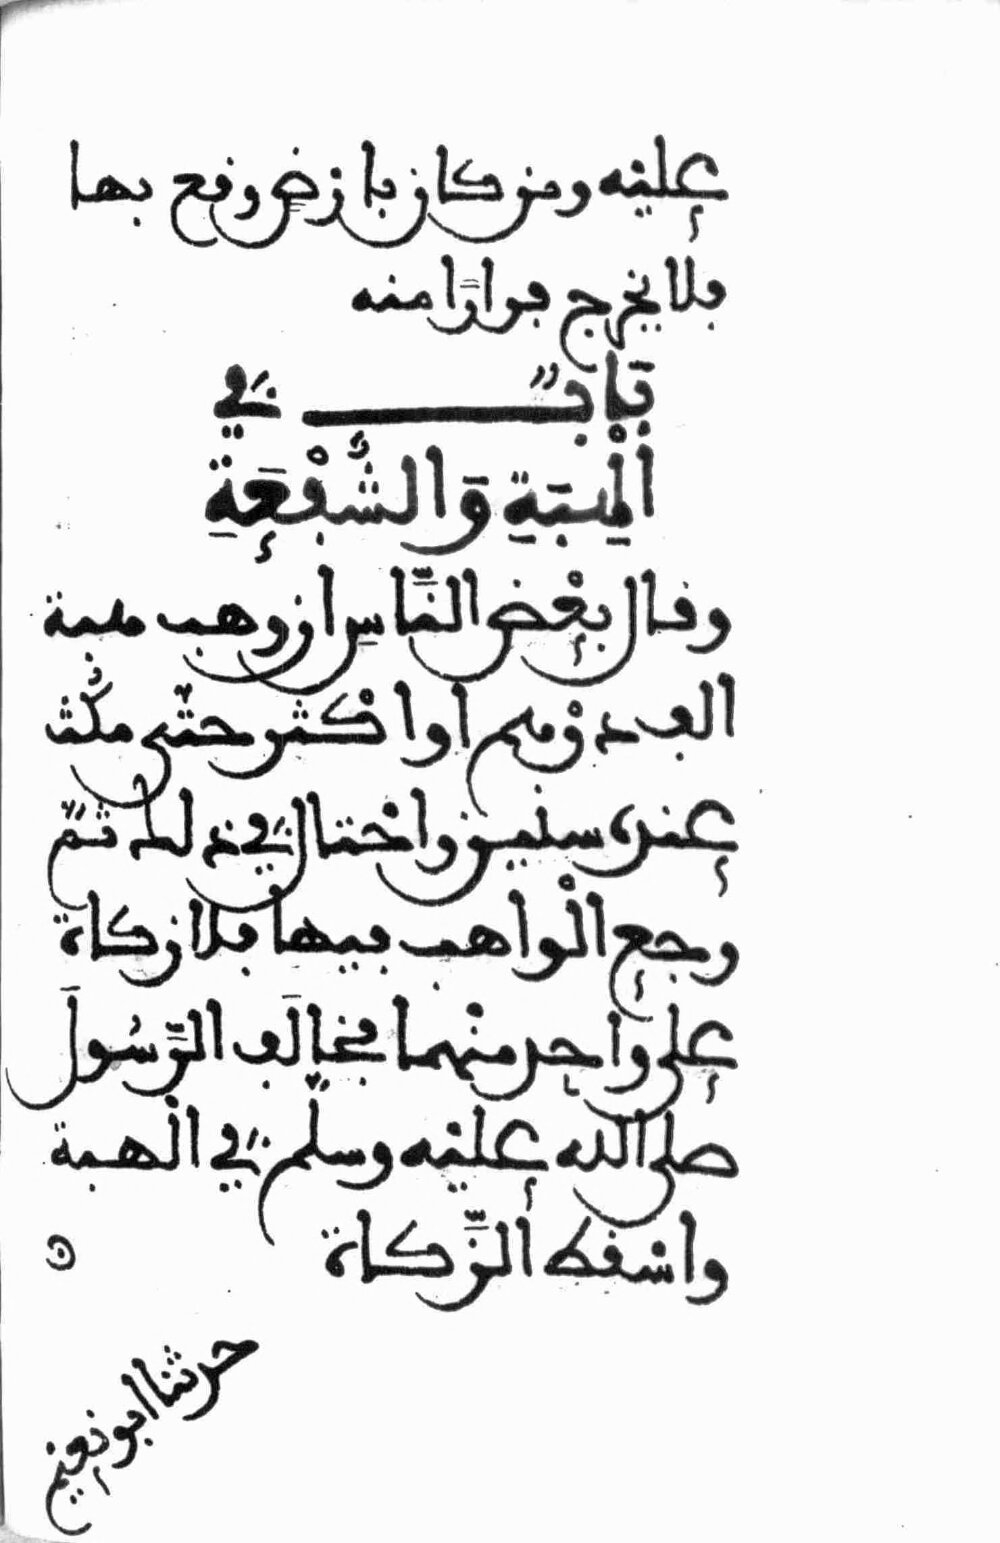 عليه ومن كان بارض وقع بها
فلا يخرج فرارًا منه
بَابٌ في
الْهِبَةِ وَالشُّفْعَةِ
وقال بعْض النَّاسِ ان وهب هبة
الف درْهم او اكْثر حتّى مكُث
عنده سنين واحْتال في ذلك ثمَّ
رجع الْواهب فيها فلا زكاة
على واحِد منْهما فخالَف الرَّسُولَ
صلى الله عليْه وسلّم في الْهبة
واسْقط الزَّكاة
حدثنا ابو نعيم